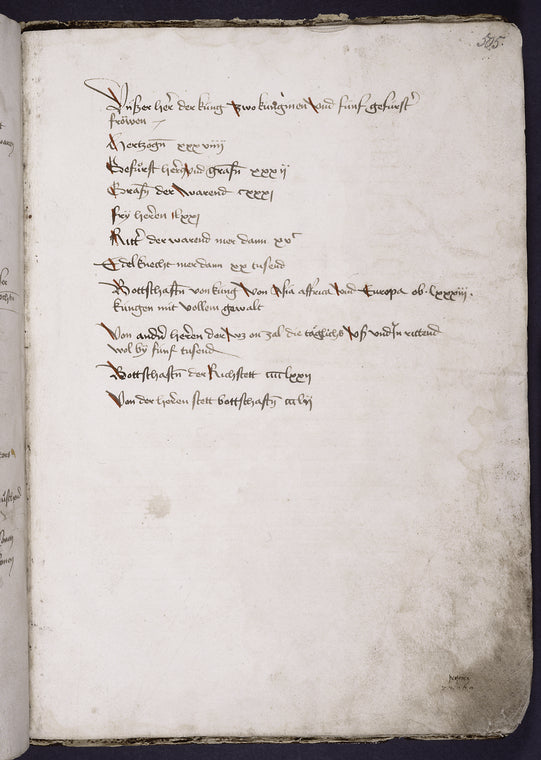 505
Vnßer her der kung zwo kunginen vnd funf gefurst
fröwen
Hertzogen xxxviiii
Gefürst hern vnd grafn xxxii
Grafn der warend cxxxi
Fry heren lxxi
Ritt der warend mer dann xvc
Edelknecht mer dann xx tusend
Bottschafftn von kung von Asia affrica vnd Europa ob lxxxiii
kungen mit vollem gewalt
Von andn heren dar vz on zal die täglichs vß vnd In rittend
wol by funf tusend
Bottschaftn der Richstett cccclxxii
Von der heren stett bottschaftn ccclii